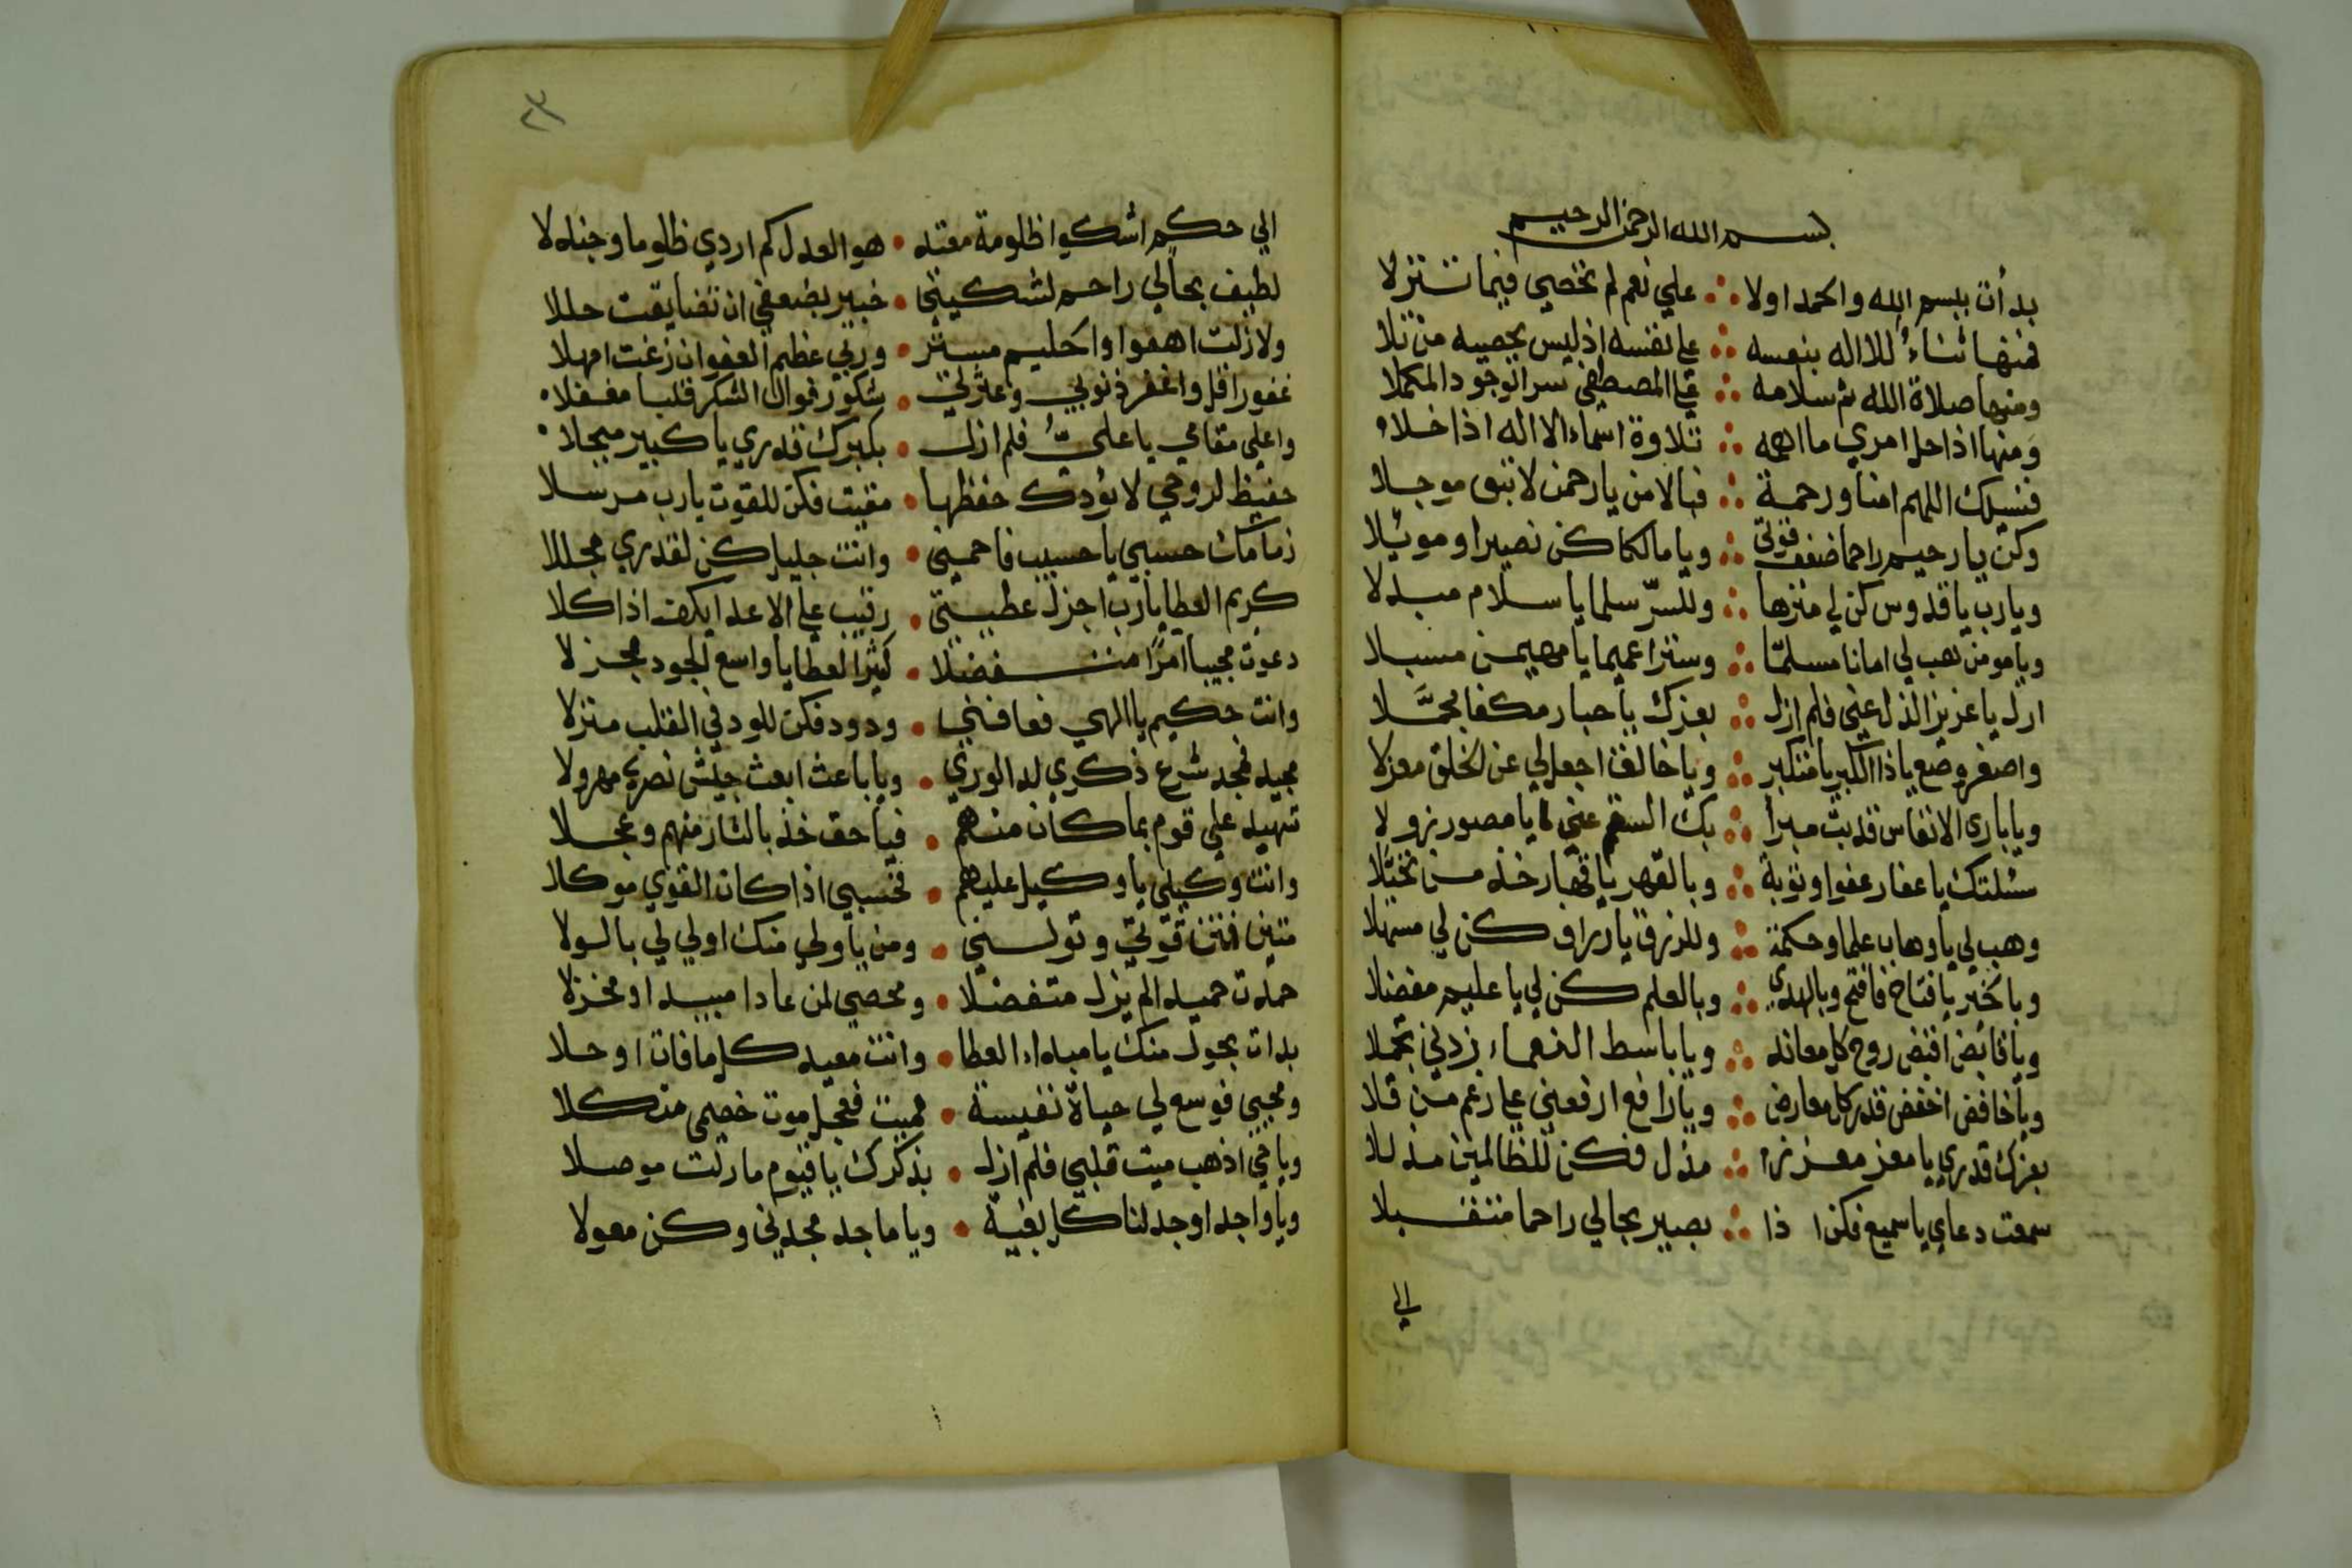 بسم الله الرحمن الرحيم
بدأت ببسم الله والحمد اولا ∴ علي نعم لم تحصي فيما تنزلا
فمنها ثناء للاله بنفسه ∴ علي نفسه اذ ليس يحصيه من تلا
ومنها صلاة الله ثم سلامه ∴ علي المصطفي سر الوجود المكملا
ومنها اذا حل امري ما اهمه ∴ تلاوة اسماء الاله اذا خلا
فنسئلك اللهم امنا ورحمة ∴ فبالامن يارحمن لا تبق موجلا
وكن يارحيم راحما ضعف قوتي ∴ ويا مالكا كن نصيرا وموئلا
ويارب ياقدوس كن لي منزها ∴ وللسر سلما ياسلام مبدلا
ويامومن هب لي امانا مسلما ∴ وسترا عميما يامهيمن مسبلا
ازل ياعزيز الذل عني فلم ازل ∴ بعزك ياجبار مكفا مجملا
واصغر وضع ياذا الكبر يامتكبر ∴ وياخالق اجعل لي عن الخلق معزلا
ويابارى الانفاس قد بت مبرأ ∴ بك السقم عني يامصور يزولا
سئلتك ياغفار عفوا وتوبة ∴ وبالقهر ياقهار خذ من تحيلا
وهب لي ياوهاب علما وحكمة ∴ وللرزق يارزاق كن لي مسهلا
وبالخير يافتاح فافتح وبالهدي ∴ وبالعلم كن لي ياعليم مفضلا
وياقابض اقبض روح كل معاند ∴ وياباسط النعماء زدني تجملا
وياخافض اخفض قدر كل معارض ∴ ويارافع ارفعني علي رغم من قلا
بعزك قدري يامعز معززا ∴ مذل فكن للظالمين مذللا
سمعت دعاي ياسميع فكن اذا ∴ بصير بحالي راحما متقبلا
الي
٢٣
الي حكم اشكوا ظلومة معتد • هو العدل كم اردي ظلوما وجندلا
لطيف بحالي راحم لشكيتي • خبير بضعفي ان تضايقت حللا
ولازلت اهفوا واحليم مستر • وربي عظيم العفو ان زغت امهلا
غفور اقل واغفر ذنوبي وعثرلتي • شكور فوال الشكر قلبا مغفلا
واعلي مقامي ياعلي فلم ازل • بكبرك قدري ياكبير مبجلا
حفيظ لروحي لا يؤدك حفظها • مقيت فكن للقوت يارب مرسلا
زمامك حسبي ياحسيب فاحميني • وانت جليل كن لقدري مجللا
كريم العطا يارب اجزل عطيتي • رقيب علي الاعدا يكف اذا كلا
دعوت مجيبا امرا متفضلا • كثير العطايا واسع الجود مجزلا
وانت حكيم ياالهي فعافني • ودود فكن للود في القلب منزلا
مجيد فمجد شرع ذكري لد الوري • وياباعث ابعث جيش نصري مهرولا
شهيد علي قوم بما كان منهم • فياحق خذ بالثار منهم وعجلا
وانت وكيلي ياوكيل عليهم • فحسبي اذا كان القوي موكلا
متين فمتن قوتي وتولني • ومن ياولي منك اولي لي بالولا
حمدت حميدا لم يزل متفضلا • ومحصي لمن عادا مبيدا ومخزلا
بدات بحول منك يامبداء العطا • وانت معيد كلما فات او حلا
ومحيي فوسع لي حياة نفيسة • مميت فعجل موت خصمي منكلا
وياحي اذهب ميت قلبي فلم ازل • بذكرك ياقيوم مازلت موصلا
وياواجد اوجد لنا كل بغية • وياماجد مجدني وكن معولا